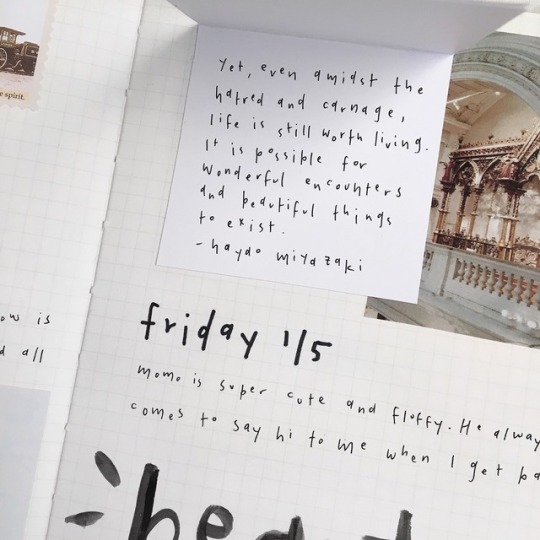 spirit.
Yet, even amidst the
hatred and carnage,
life is still worth living.
It is possible for
wonderful encounters
and beautiful things
to exist.
- hayao miyazaki
is
all
friday 1/5
momo is super cute and fluffy. He
comes to say hi to me when I get